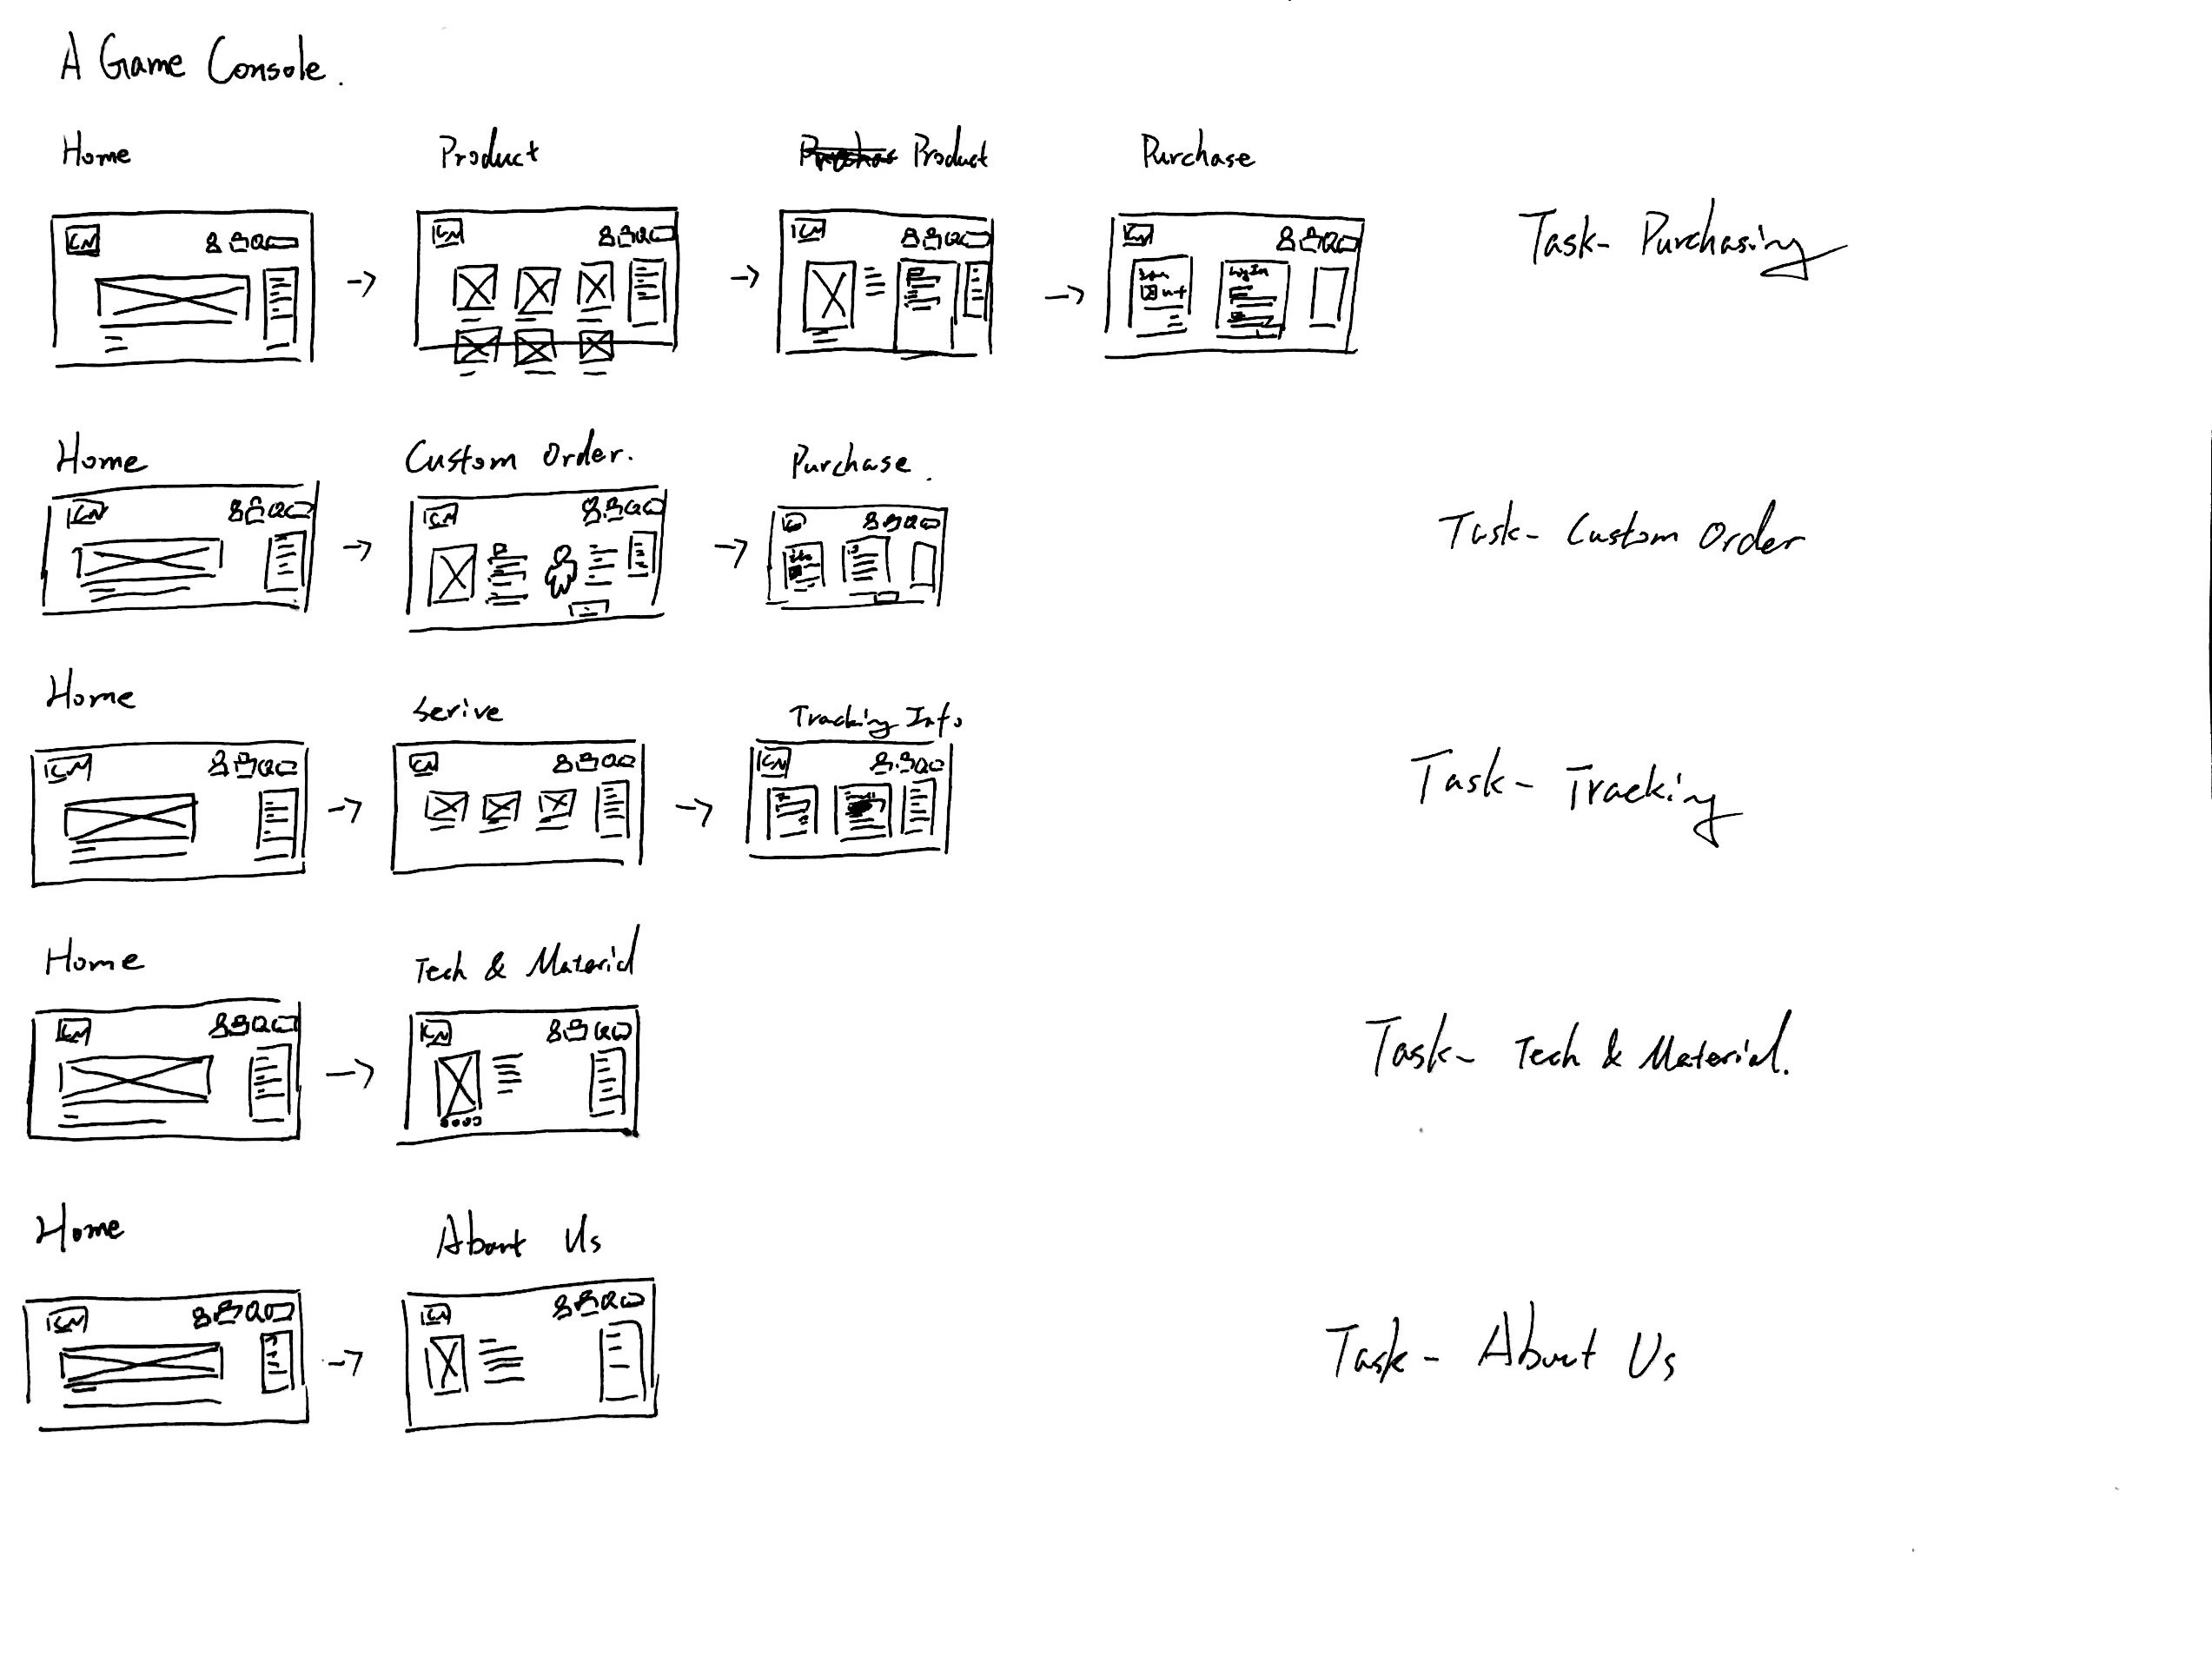 A Game Console.
Home Product Product Purchase
Task- Purchasing
Log In
Home Custom Order. Purchase.
Task- Custom Order
Home Serive Tracking Info.
Task- Tracking
Home Tech & Material
Task- Tech & Material.
Home About Us
Task- About Us